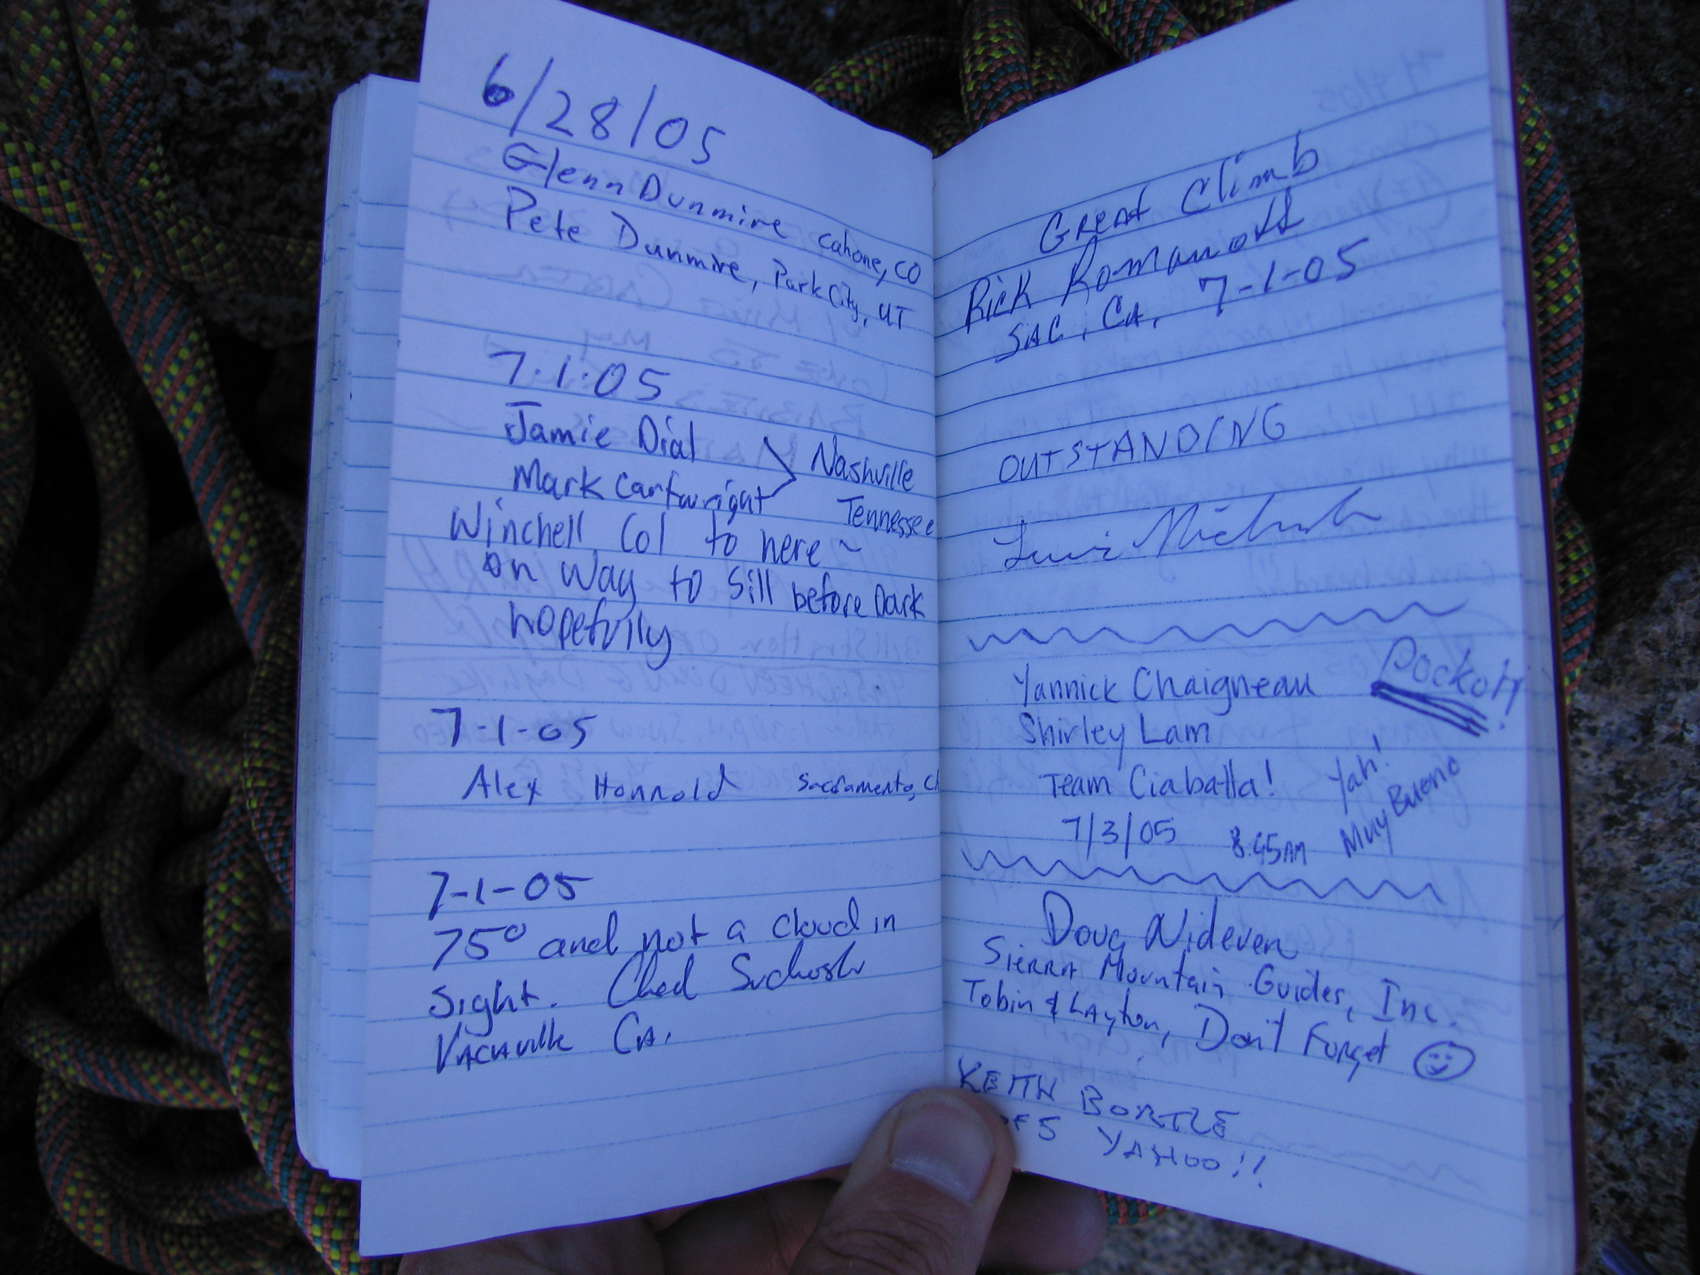 6/28/05
Glenn Dunmire Cahone, CO
Pete Dunmire, Park City, UT
7.1.05
Jamie Dial
Mark Cartwright
Nashville
Tennessee
Winchell Col to here ~
on way to Sill before Dark
hopefully
7-1-05
Alex Honnold Sacramento, CA
7-1-05
75° and not a cloud in
sight. Chad
Vacaville CA.
Great Climb
Rick Romanoff
SAC, CA, 7-1-05
OUTSTANDING
Yannick Chaigneau
Shirley Lam
Team Ciabatta!
7/3/05 8:45AM
Yah!
Muy Bueno
Doug Nideven
Sierra Mountain Guides, Inc.
Tobin & Layton, Don't Forget ☺
KEITH BORTLE
OF 5 YAHOO!!